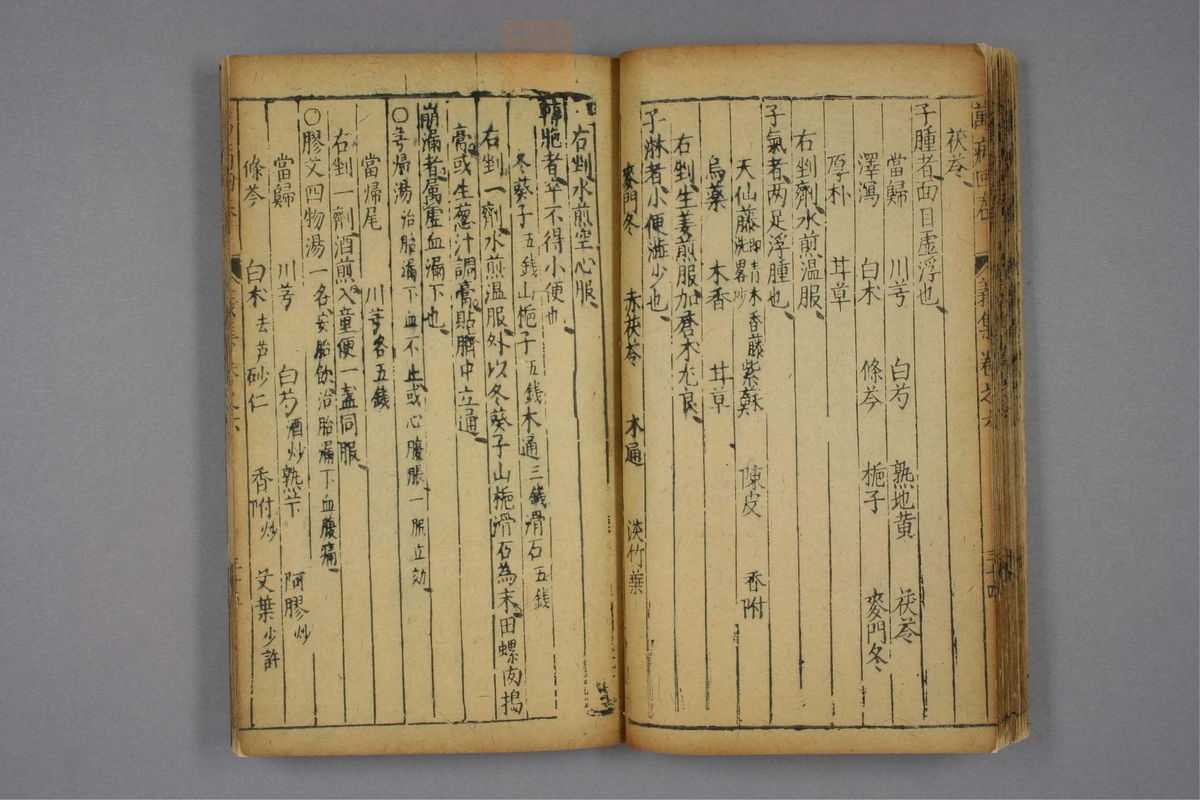 萬病回春
義集卷之六
茯苓
子腫者面目虛浮也
當歸 川芎 白芍 熟地黃 茯苓
澤瀉 白术 條芩 梔子 麥門冬
厚朴 甘草
右剉劑水煎温服
子氣者两足浮腫也
天仙藤即青木香藤洗畧炒 紫蘇 陳皮 香附
烏藥 木香 甘草
右剉生姜煎服加蒼术尤良
子淋者小便澁少也
麥門冬 赤茯苓 木通 淡竹葉
右剉水煎空心服
轉胞者卒不得小便也
冬葵子五錢 山梔子五錢 木通三錢 滑石五錢
右剉一劑水煎温服外以冬葵子山梔滑石為末田螺肉搗
膏或生葱汁調膏貼臍中立通
崩漏者属虛血漏下也
〇芎歸湯治胎漏下血不止或心腹脹一服立効
當帰尾 川芎各五錢
右剉一劑酒煎入童便一盞同服
〇膠艾四物湯一名安胎飲治胎漏下血腹痛
當歸 川芎 白芍酒炒 熟苄 阿膠炒
條芩 白术去芦 砂仁 香附炒 艾葉少許